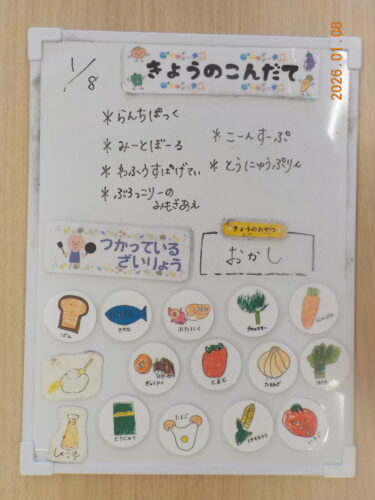 2026.01.08
1/8
きょうのこんだて
＊らんちぱっく
＊みーとぼーる
＊わふうすぱげてぃ
＊ぶろっこりーの
みもざあえ
＊こーんすーぷ
＊とうにゅうぷりん
きょうのおやつ
おかし
つかっている
ざいりょう
ぱん
さかな
ぶたにく
ブロッコリー
にんじん
ぎゅうにく
とまと
たまねぎ
しょうゆ
とうにゅう
たまご